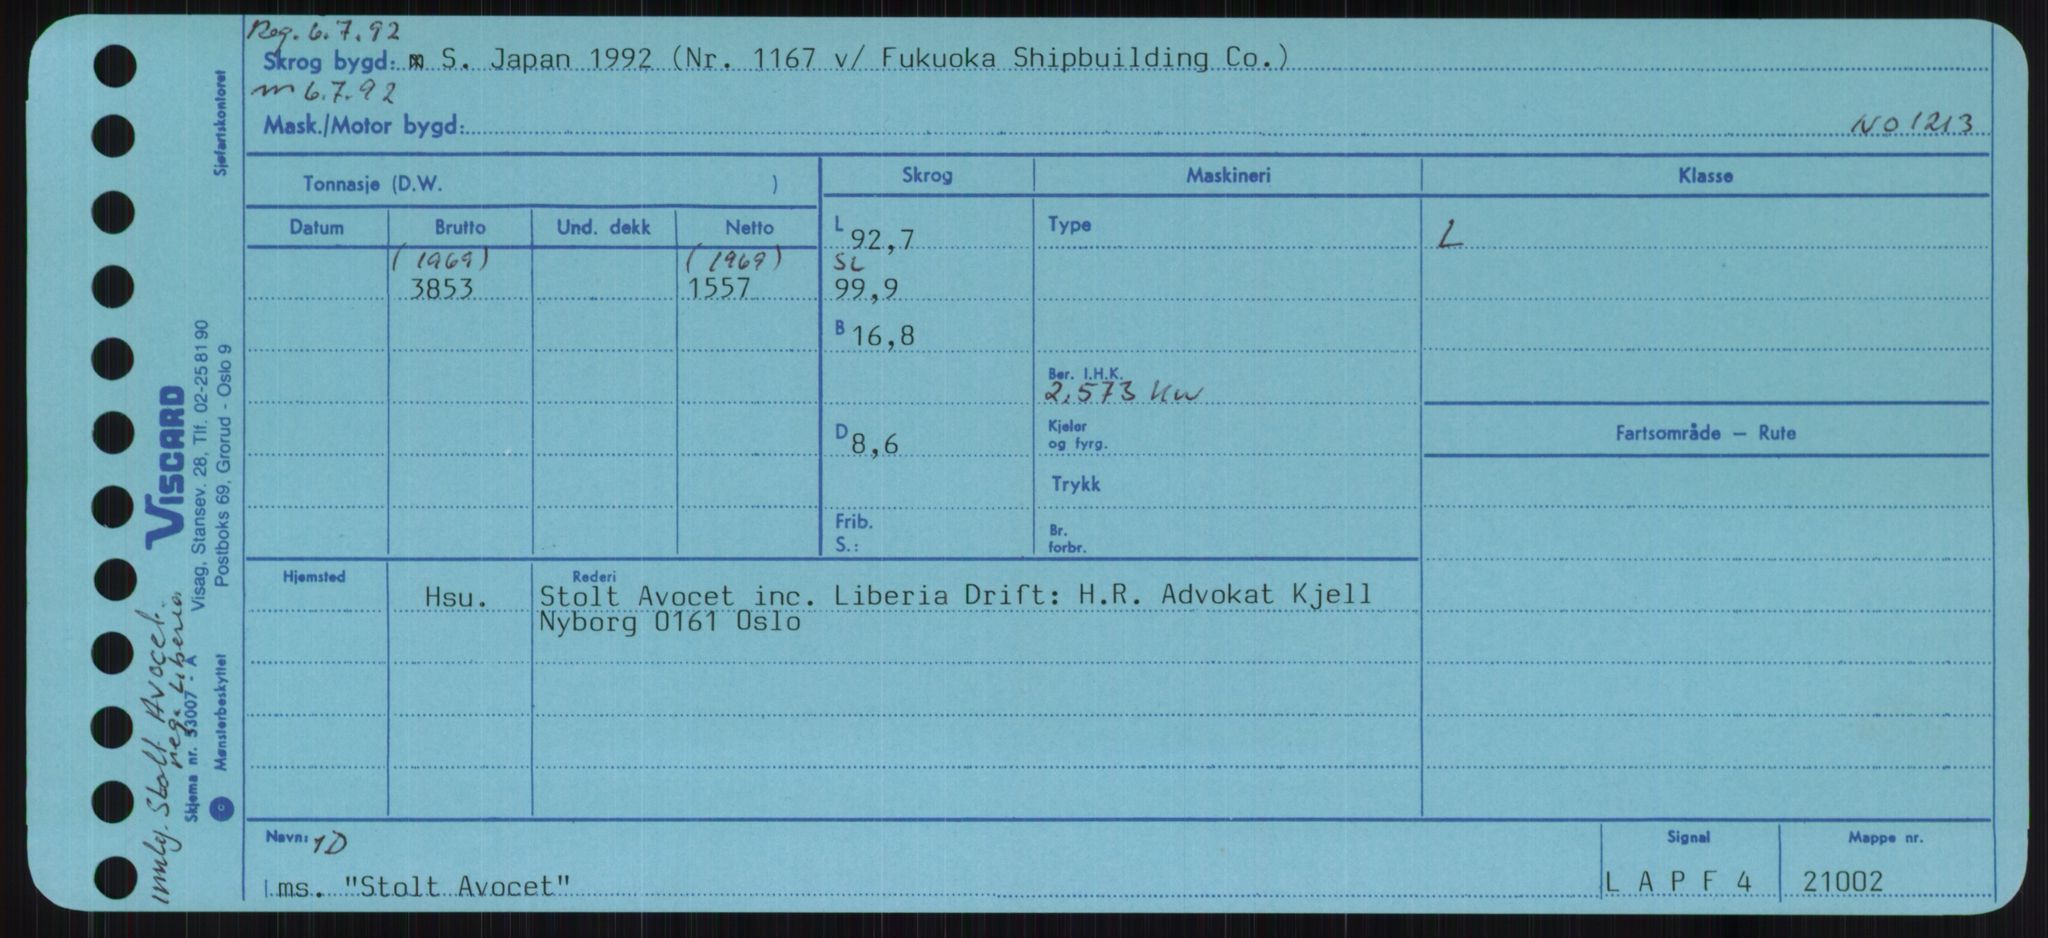 Reg. 6.7.92
Skrog bygd: m S. Japan 1992 (Nr. 1167 v/ Fukuoka Shipbuilding Co.)
m 6.7.92
Mask./Motor bygd: NO 1213
Tonnasje (D.W. )
Skrog Maskineri Klasse
Datum Brutto Und. dekk Netto
L 92,7 Type L
(1969) (1969) SL
3853 1557 99,9
B 16,8
Ber. I.H.K.
2.573 Kw
D 8,6
Kjeler
og fyrg.
Fartsområde — Rute
Trykk
Frib.
S.:
Br.
forbr.
Hjemsted Rederi
Hsu. Stolt Avocet inc. Liberia Drift: H.R. Advokat Kjell
Nyborg 0161 Oslo
Navn: 1D
ms. "Stolt Avocet"
Signal
L A P F 4
Mappe nr.
21002
Sjøfartskontoret
VISCARD
Visag, Stansev. 28, Tlf. 02-25 81 90
Postboks 69, Grorud - Oslo 9
Skjema nr. 53007 - A
Mønsterbeskyttet
Stolt Avocet.
reg. Liberia